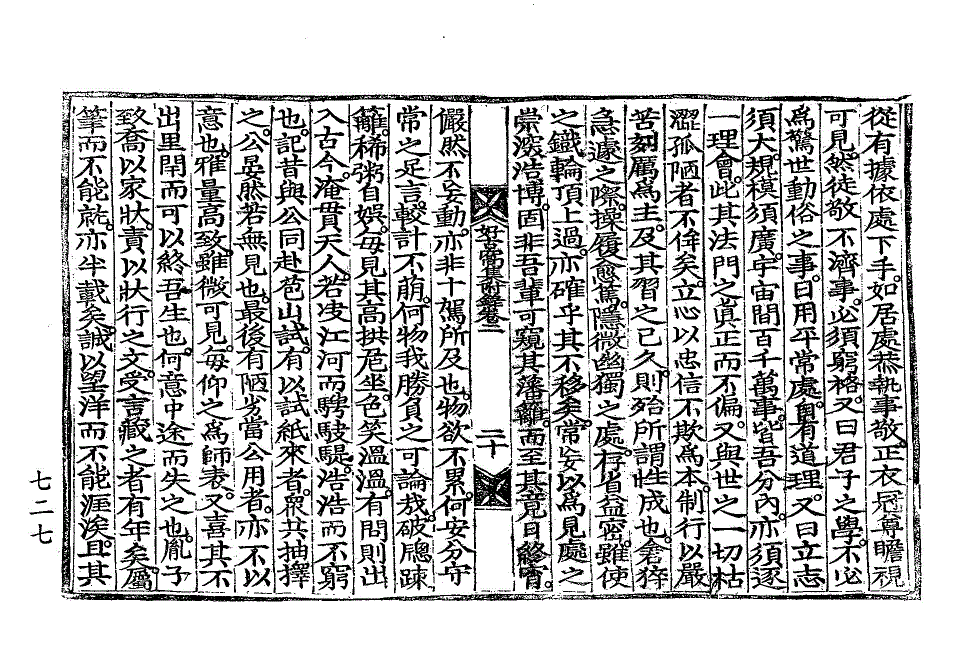 從有據依處下手如居處恭執事敬正衣冠尊瞻視
可見然徒敬不濟事必須窮格又曰君子之學不必
爲驚世動俗之事日用平常處自有道理又曰立志
須大規模須廣宇宙間百千萬事皆吾分內亦須逐
一理會此其法門之眞正而不偏又與世之一切枯
澀孤陋者不侔矣立心以忠信不欺爲本制行以嚴
苦刻厲爲主及其習之已久則殆所謂性成也倉猝
急遽之際操履愈篤隱微幽獨之處存省益密雖使
之鐵輪頂上過亦確乎其不移矣常妄以爲見處之
崇深浩博固非吾輩可窺其藩籬而至其竟日終宵
好古窩集附錄卷二
二十
儼然不妄動亦非十駕所及也物欲不累何安分守
常之足言較計不萠何物我勝負之可論哉破牕踈
籬稀粥自娛每見其高拱危坐色笑溫溫有問則出
入古今淹貫天人若决江河而騁駛騠浩浩而不窮
也記昔與公同赴芚山試有以試紙來者衆共抽擇
之公晏然若無見也最後有陋劣當公用者亦不以
意也雅量高致雖微可見每仰之爲師表又喜其不
出里閈而可以終吾生也何意中途而失之也胤子
致喬以家狀責以狀行之文受言藏之者有年矣屬
筆而不能就亦半載矣誠以望洋而不能涯涘且其
七二七